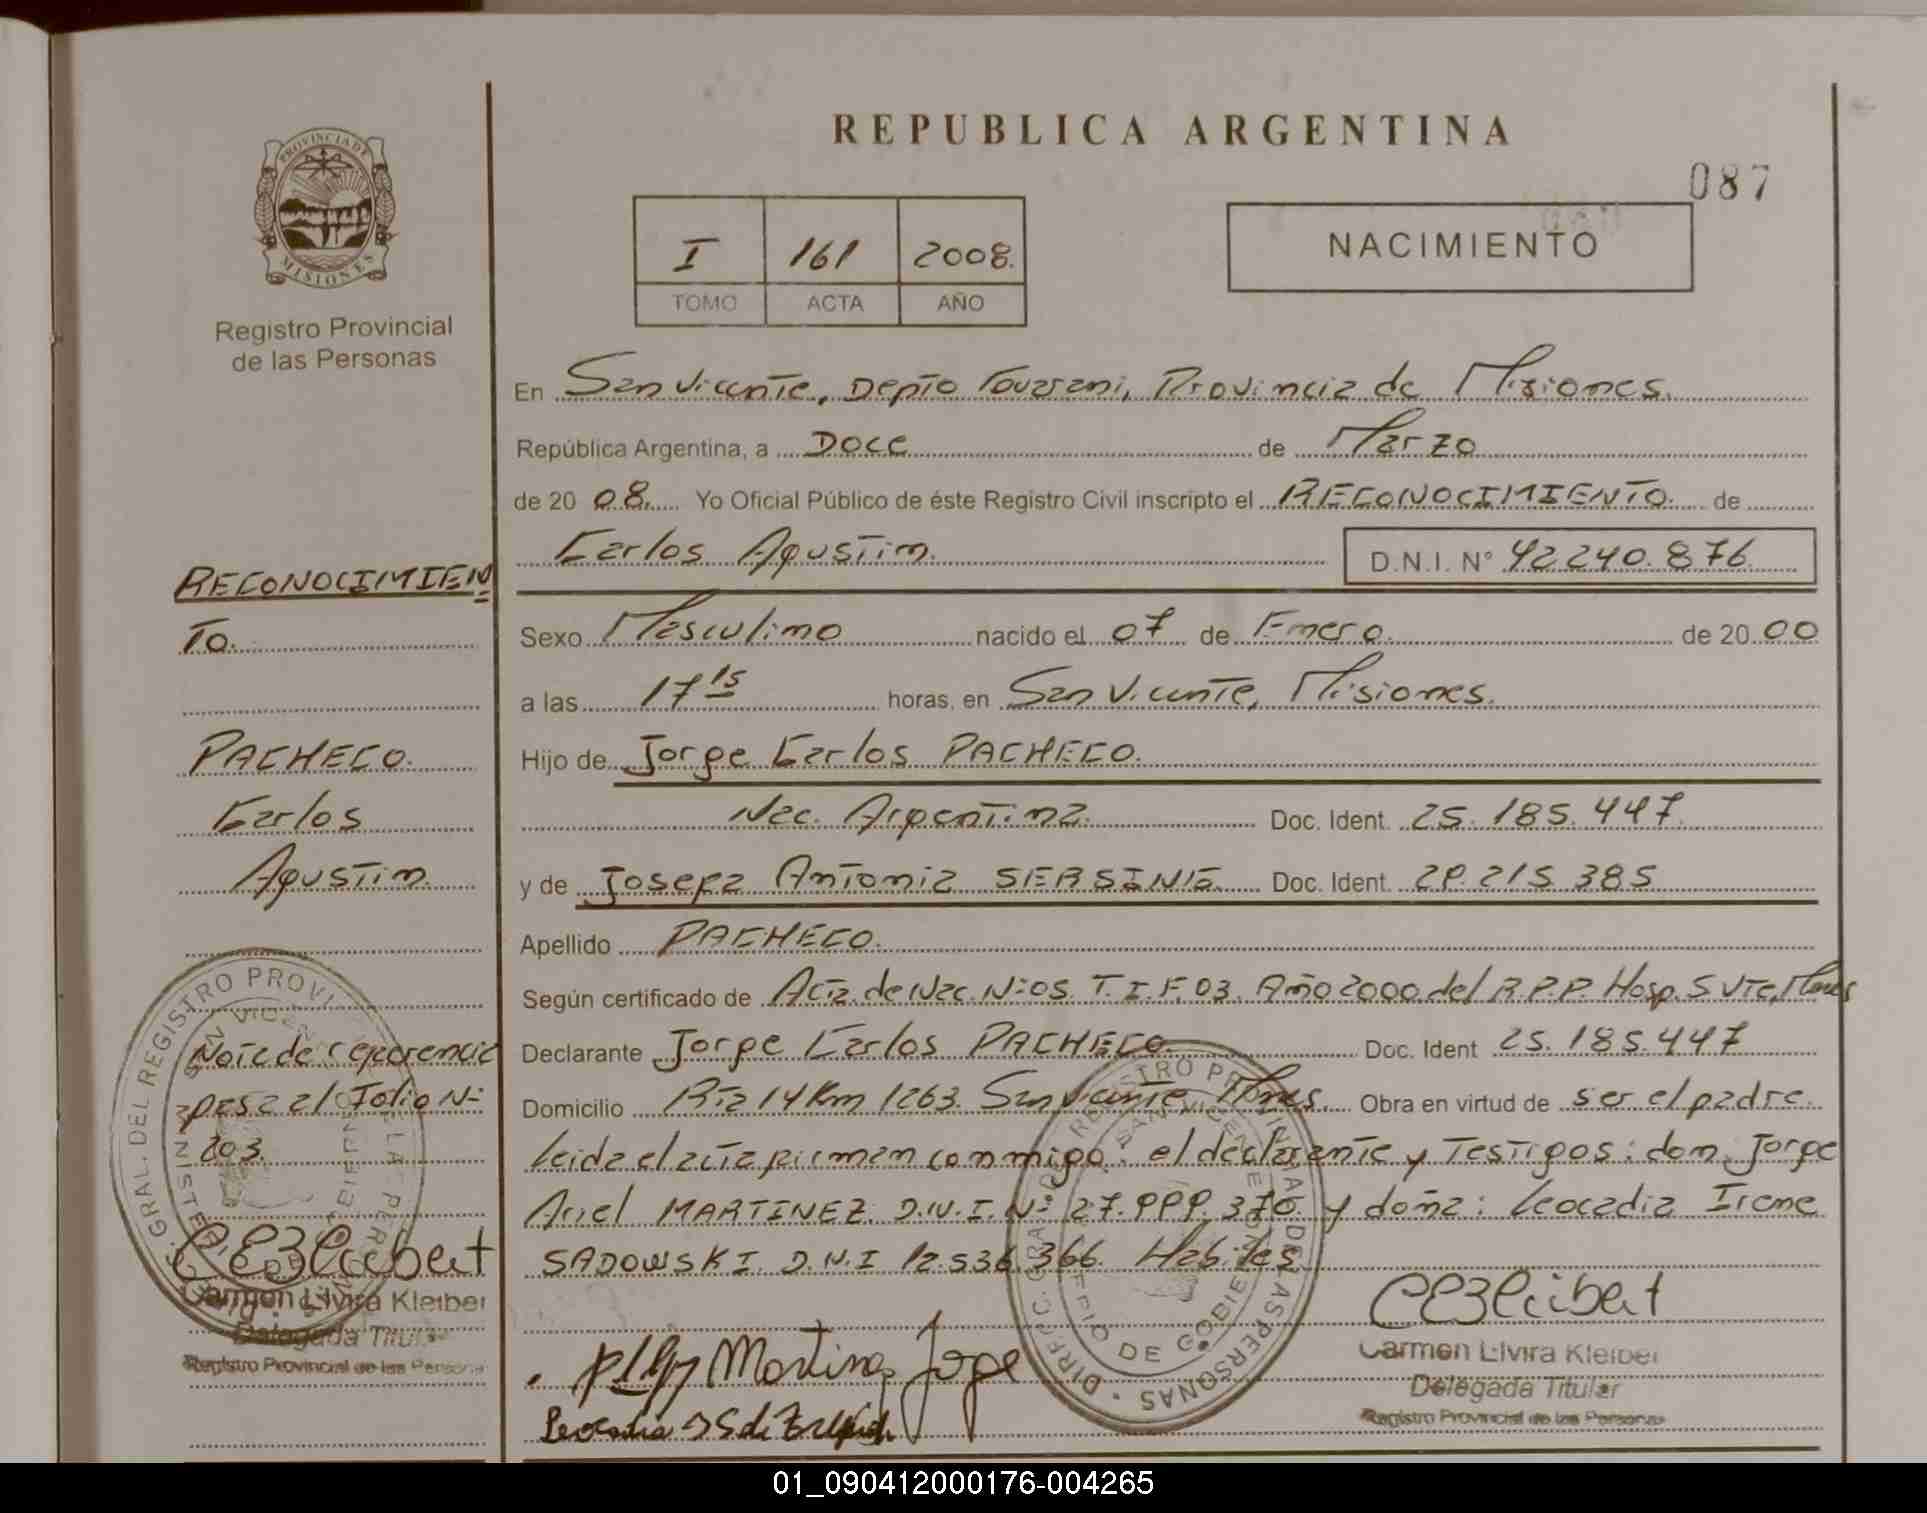 REPUBLICA ARGENTINA
087
PROVINCIA DE
MISIONES
Registro Provincial
de las Personas
I 161 2008.
TOMO ACTA AÑO
NACIMIENTO
En San Vicente, Depto Guarani, Provincia de Misiones.
República Argentina, a Doce de Marzo
de 20 08. Yo Oficial Público de éste Registro Civil inscripto el RECONOCIMIENTO de
Carlos Agustin. D.N.I. N° 42240.876
Sexo Masculino nacido el 07 de Enero. de 20 00
a las 17 15 horas, en San Vicente, Misiones.
Hijo de Jorge Carlos PACHECO.
Nac. Argentina. Doc. Ident. 25.185.447.
y de Josefa Antonia Doc. Ident. 29.215.385
Apellido PACHECO.
Según certificado de Acta de Nac. N=05. T.I F.03. Año 2000 del R.P.P. Hosp. S Vte, Mnes
Declarante Jorge Carlos PACHECO. Doc. Ident 25.185.447
Domicilio Rta 14 Km 1263. San Vicente Mnes. Obra en virtud de ser el padre.
Leida el acta firman conmigo: el declarante y Testigos: don Jorge
Ariel MARTINEZ. D.N.I. N° 27.999.370. y doña: Leocadia Irene
SADOWSKI. D.N.I 12.536.366. Habiles
RECONOCIMIEN
TO.
PACHECO.
Carlos
Agustin.
Nota de referencia
pasa al Folio N=
203.
Carmen Elvira Kleiber
Delegada Titular
Registro Provincial de las Personas
Martinez Jorge
Carmen Elvira Kleiber
Delegada Titular
Registro Provincial de las Personas
01_090412000176-004265